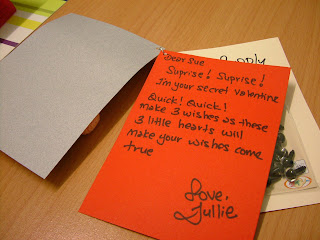 Dear Sue
Suprise! Suprise!
I'm your secret valentine
Quick! Quick!
make 3 wishes as these
3 little hearts will
make your wishes come
true
Love,
Jullie